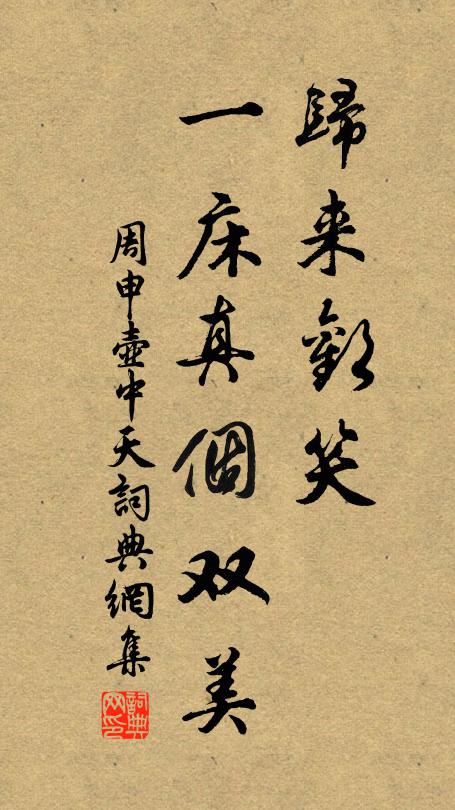 歸来歡笑
一床真個双美
周申壺中天詞典網集
詞典
网印